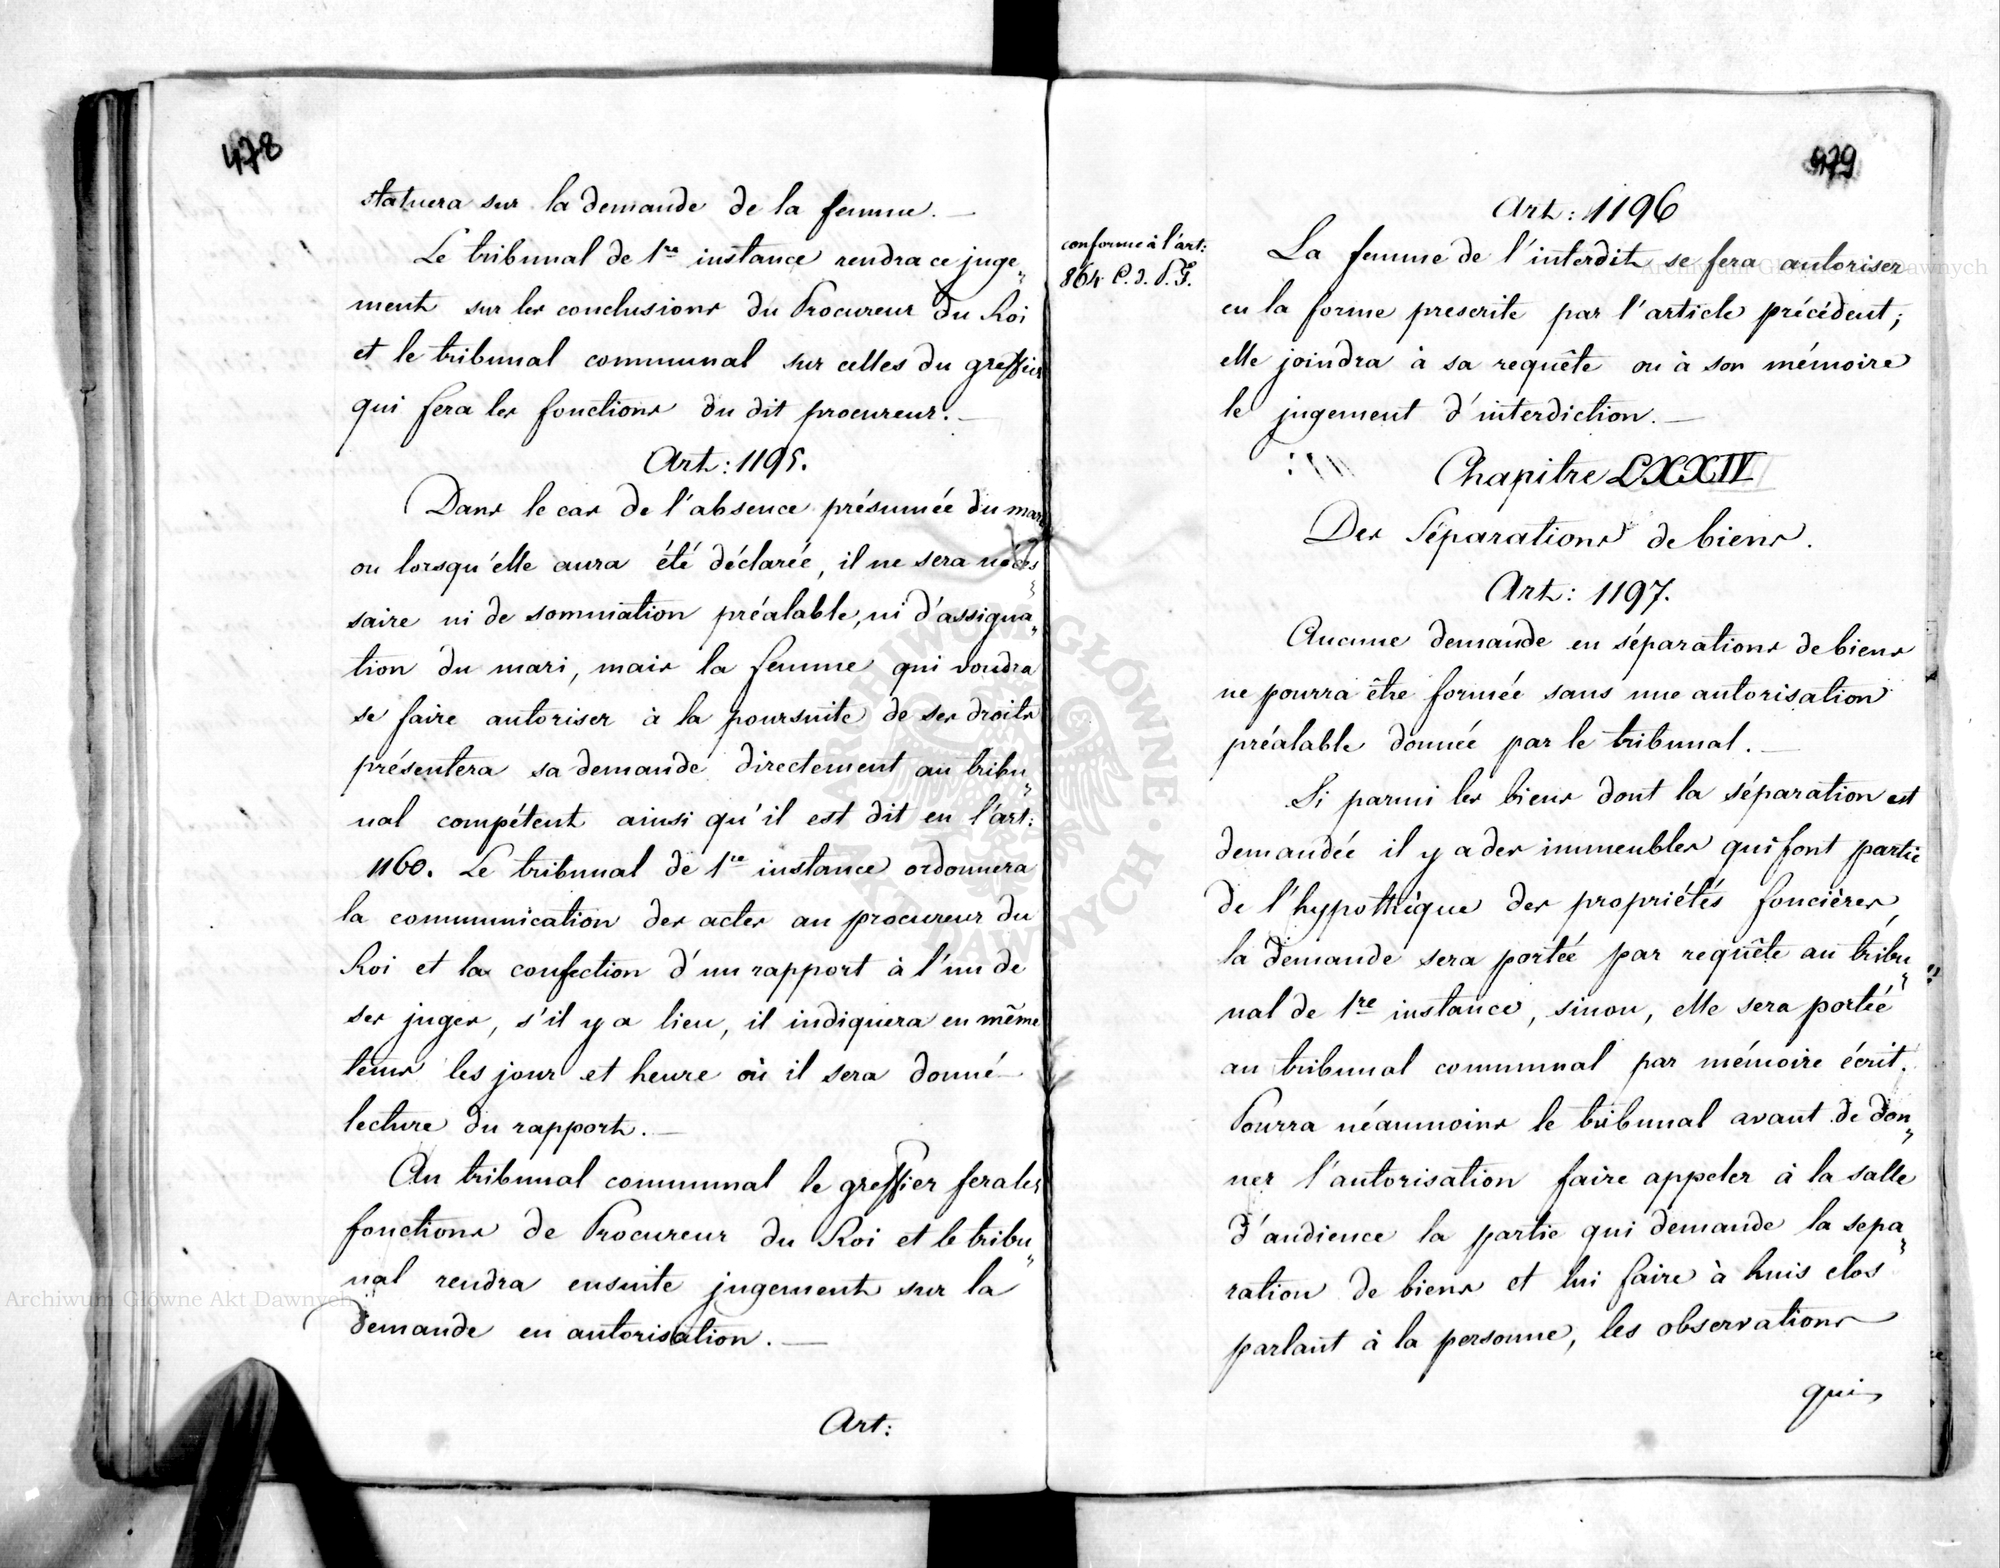 478
statuera sur la demande de la femme. —
Le tribunal de 1re instance rendra ce juge„
ment sur les conclusions du Procureur du Roi
et le tribunal communal sur celles du greffier
qui fera les fonctions du dit procureur. —
Art: 1195.
Dans le cas de l'absence présumée du mari
ou lorsqu'elle aura été déclarée, il ne sera néces„
saire ni de sommation préalable, ni d'assigna„
tion du mari, mais la femme qui voudra
se faire autoriser à la poursuite de ses droits
présentera sa demande directement au tribu„
nal compétent ainsi qu'il est dit en l'art:
1160. Le tribunal de 1re instance ordonnera
la communication des actes au procureur du
Roi et la confection d'un rapport à l'un de
ses juges, s'il y a lieu, il indiquera en même
tems les jour et heure où il sera donné
lecture du rapport. —
Au tribunal communal le greffier fera les
fonctions de Procureur du Roi et le tribu„
nal rendra ensuite jugement sur la
demande en autorisation. —
Art:
479
Art: 1196
conforme à l'art:
864 C. d. P. F.
La femme de l'interdit se fera autoriser
en la forme prescrite par l'article précédent;
elle joindra à sa requête ou à son mémoire
le jugement d'interdiction. —
Chapitre LXXIV
Des Séparations de biens.
Art: 1197.
Aucune demande en séparations de biens
ne pourra être formée sans une autorisation
préalable donnée par le tribunal. —
Si parmi les biens dont la séparation est
demandée il y a des immeubles qui font partie
de l'hypothèque des propriétés foncières,
la demande sera portée par requête au tribu„
nal de 1re instance, sinon, elle sera portée
au tribunal communal par mémoire écrit.
Pourra néanmoins le tribunal avant de don„
ner l'autorisation faire appeler à la salle
d'audience la partie qui demande la sepa„
ration de biens et lui faire à huis clos
parlant à la personne, les observations
qui
Archiwum Główne Akt Dawnych
Archiwum Główne Akt Dawnych
ARCHIWUM GŁÓWNE AKT DAWNYCH